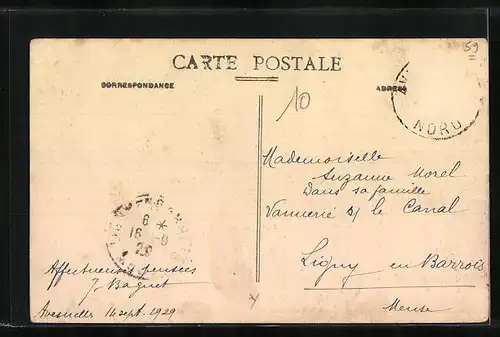 CARTE POSTALE
CORRESPONDANCE
ADRESSE
10
59
NORD
Mademoiselle
Suzanne Morel
Dans sa famille
Vannerie s/ le Canal
Ligny en Barrois
Meuse
6 *
16 - 9
29
Affectueuses pensées
J. Baquet
Avesnelles 14 sept. 1929